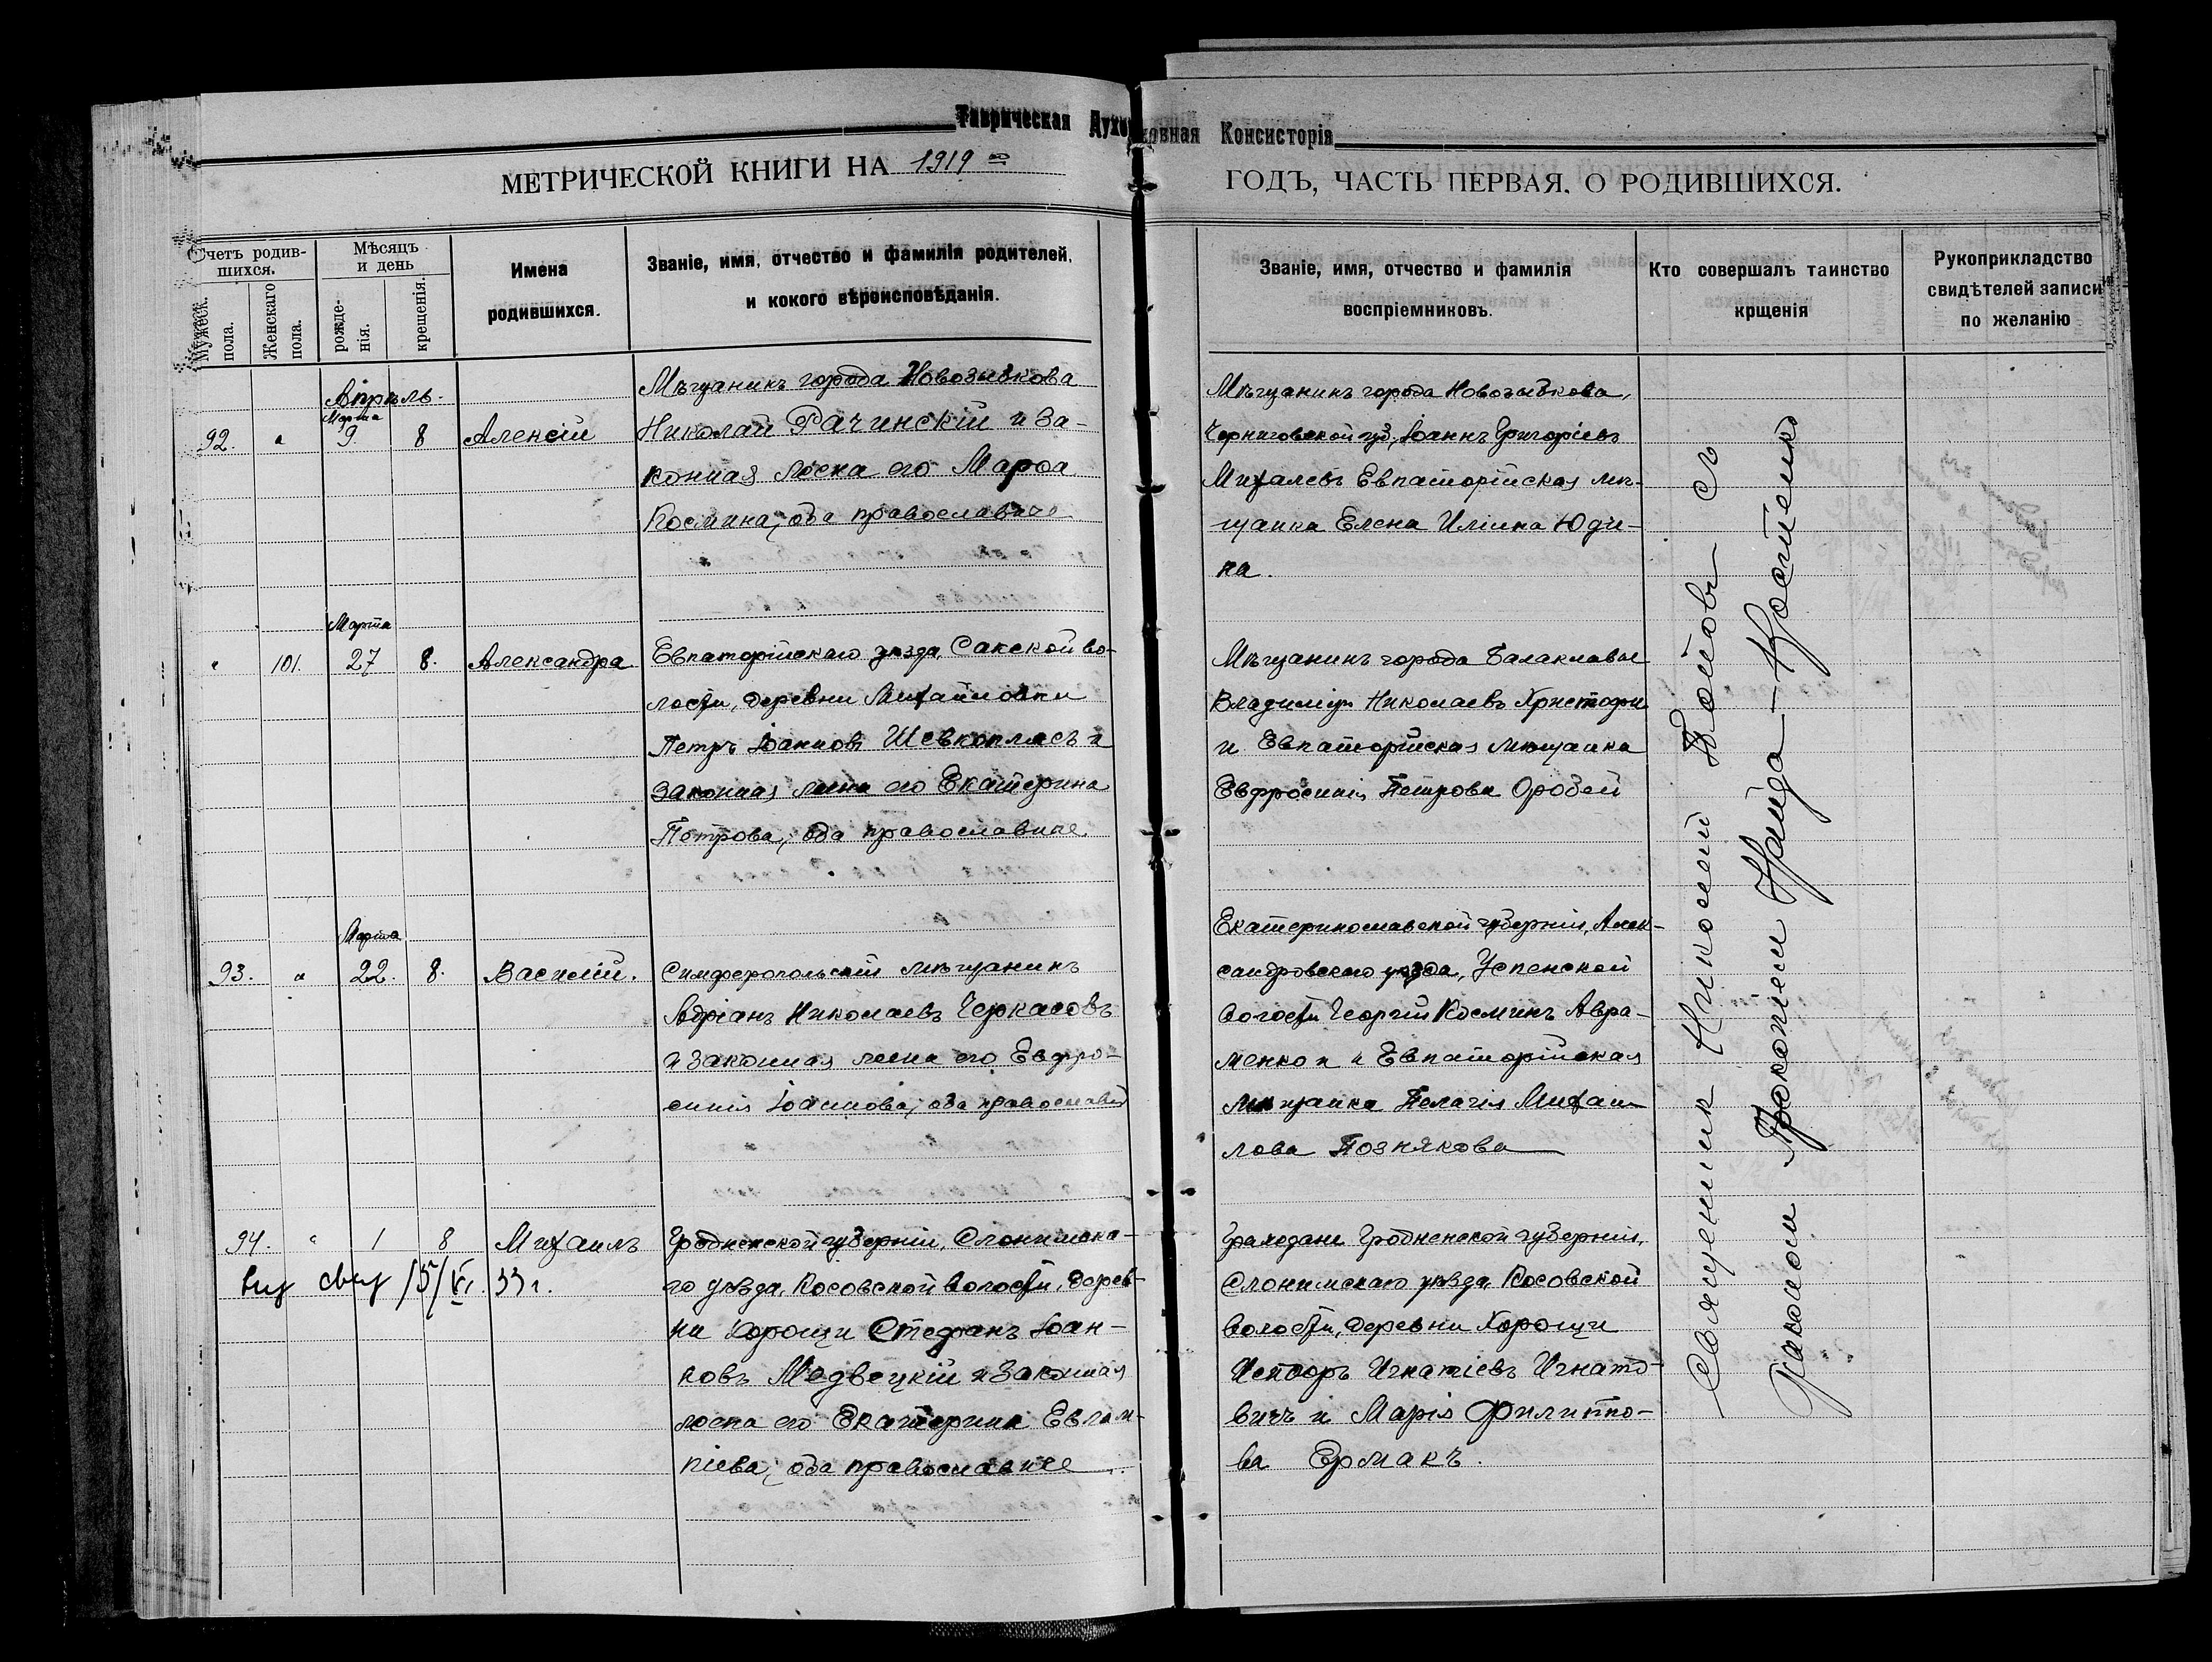 Таврическая Духовная Консисторія
МЕТРИЧЕСКОЙ КНИГИ НА 1919 й ГОДЪ, ЧАСТЬ ПЕРВАЯ. О РОДИВШИХСЯ.
Счетъ родившихся.
Мужеск. пола.
Женскаго пола.
Мѣсяцъ и день
рожденія.
крещенія.
Имена
родившихся.
Званіе, имя, отчество и фамилія родителей,
и кокого вѣроисповѣданія.
Званіе, имя, отчество и фамилія
воспріемниковъ.
Кто совершалъ таинство
крщенія
Рукоприкладство
свидѣтелей записи
по желанію
Апрѣль
Марта
92. " 9. 8 Алексій
Мѣщанинъ города Новозыбкова
Николай Рачинскій и за-
конная жена его Марѳа
Космина, оба православные
Мѣщанинъ города Новозыбкова,
Черниговской губ., Іоаннъ Григоріевъ
Михалевъ Евпаторійская мѣ-
щанка Елена Иліина Юди-
на.
Марта
" 101. 27 8. Александра
Евпаторійскаго уѣзда, Сакской во-
лости, деревни Михайловки
Петръ Іоанновъ Шевкоплясъ и
законная жена его Екатерина
Петрова, оба православные.
Мѣщанинъ города Балаклавы
Владиміръ Николаевъ Христофи
и Евпаторійская мѣщанка
Евфросинія Петрова Оробей
Марта
93. " 22. 8. Василій.
Симферопольскій мѣщанинъ
Адріанъ Николаевъ Черкасовъ
и законная жена его Евфро-
синія Іоаннова, оба православ
Екатеринославской губерніи, Алек-
сандровскаго уѣзда, Успенской
волости Георгій Косминъ Авра-
менко и и Евпаторійская
мѣщанка Пелагія Михаи-
лова Познякова
94. " 1 8 Михаилъ
15/VI. 33 г.
Гродненской губерніи, Слонимска-
го уѣзда, Косовской волости, дерев-
ни Хорощи Стефанъ Іоан-
новъ Медвецкій и законная
жена его Екатерина Евлам-
піева, оба православные
Граждане Гродненской губерніи,
Слонимскаго уѣзда, Косовской
волости, деревни Хорощи
Игнатіевъ Игнато-
вичъ и Марія Филиппо-
ва Ермакъ.
Священник Николай съ
Прокопіем Найда-Костенко